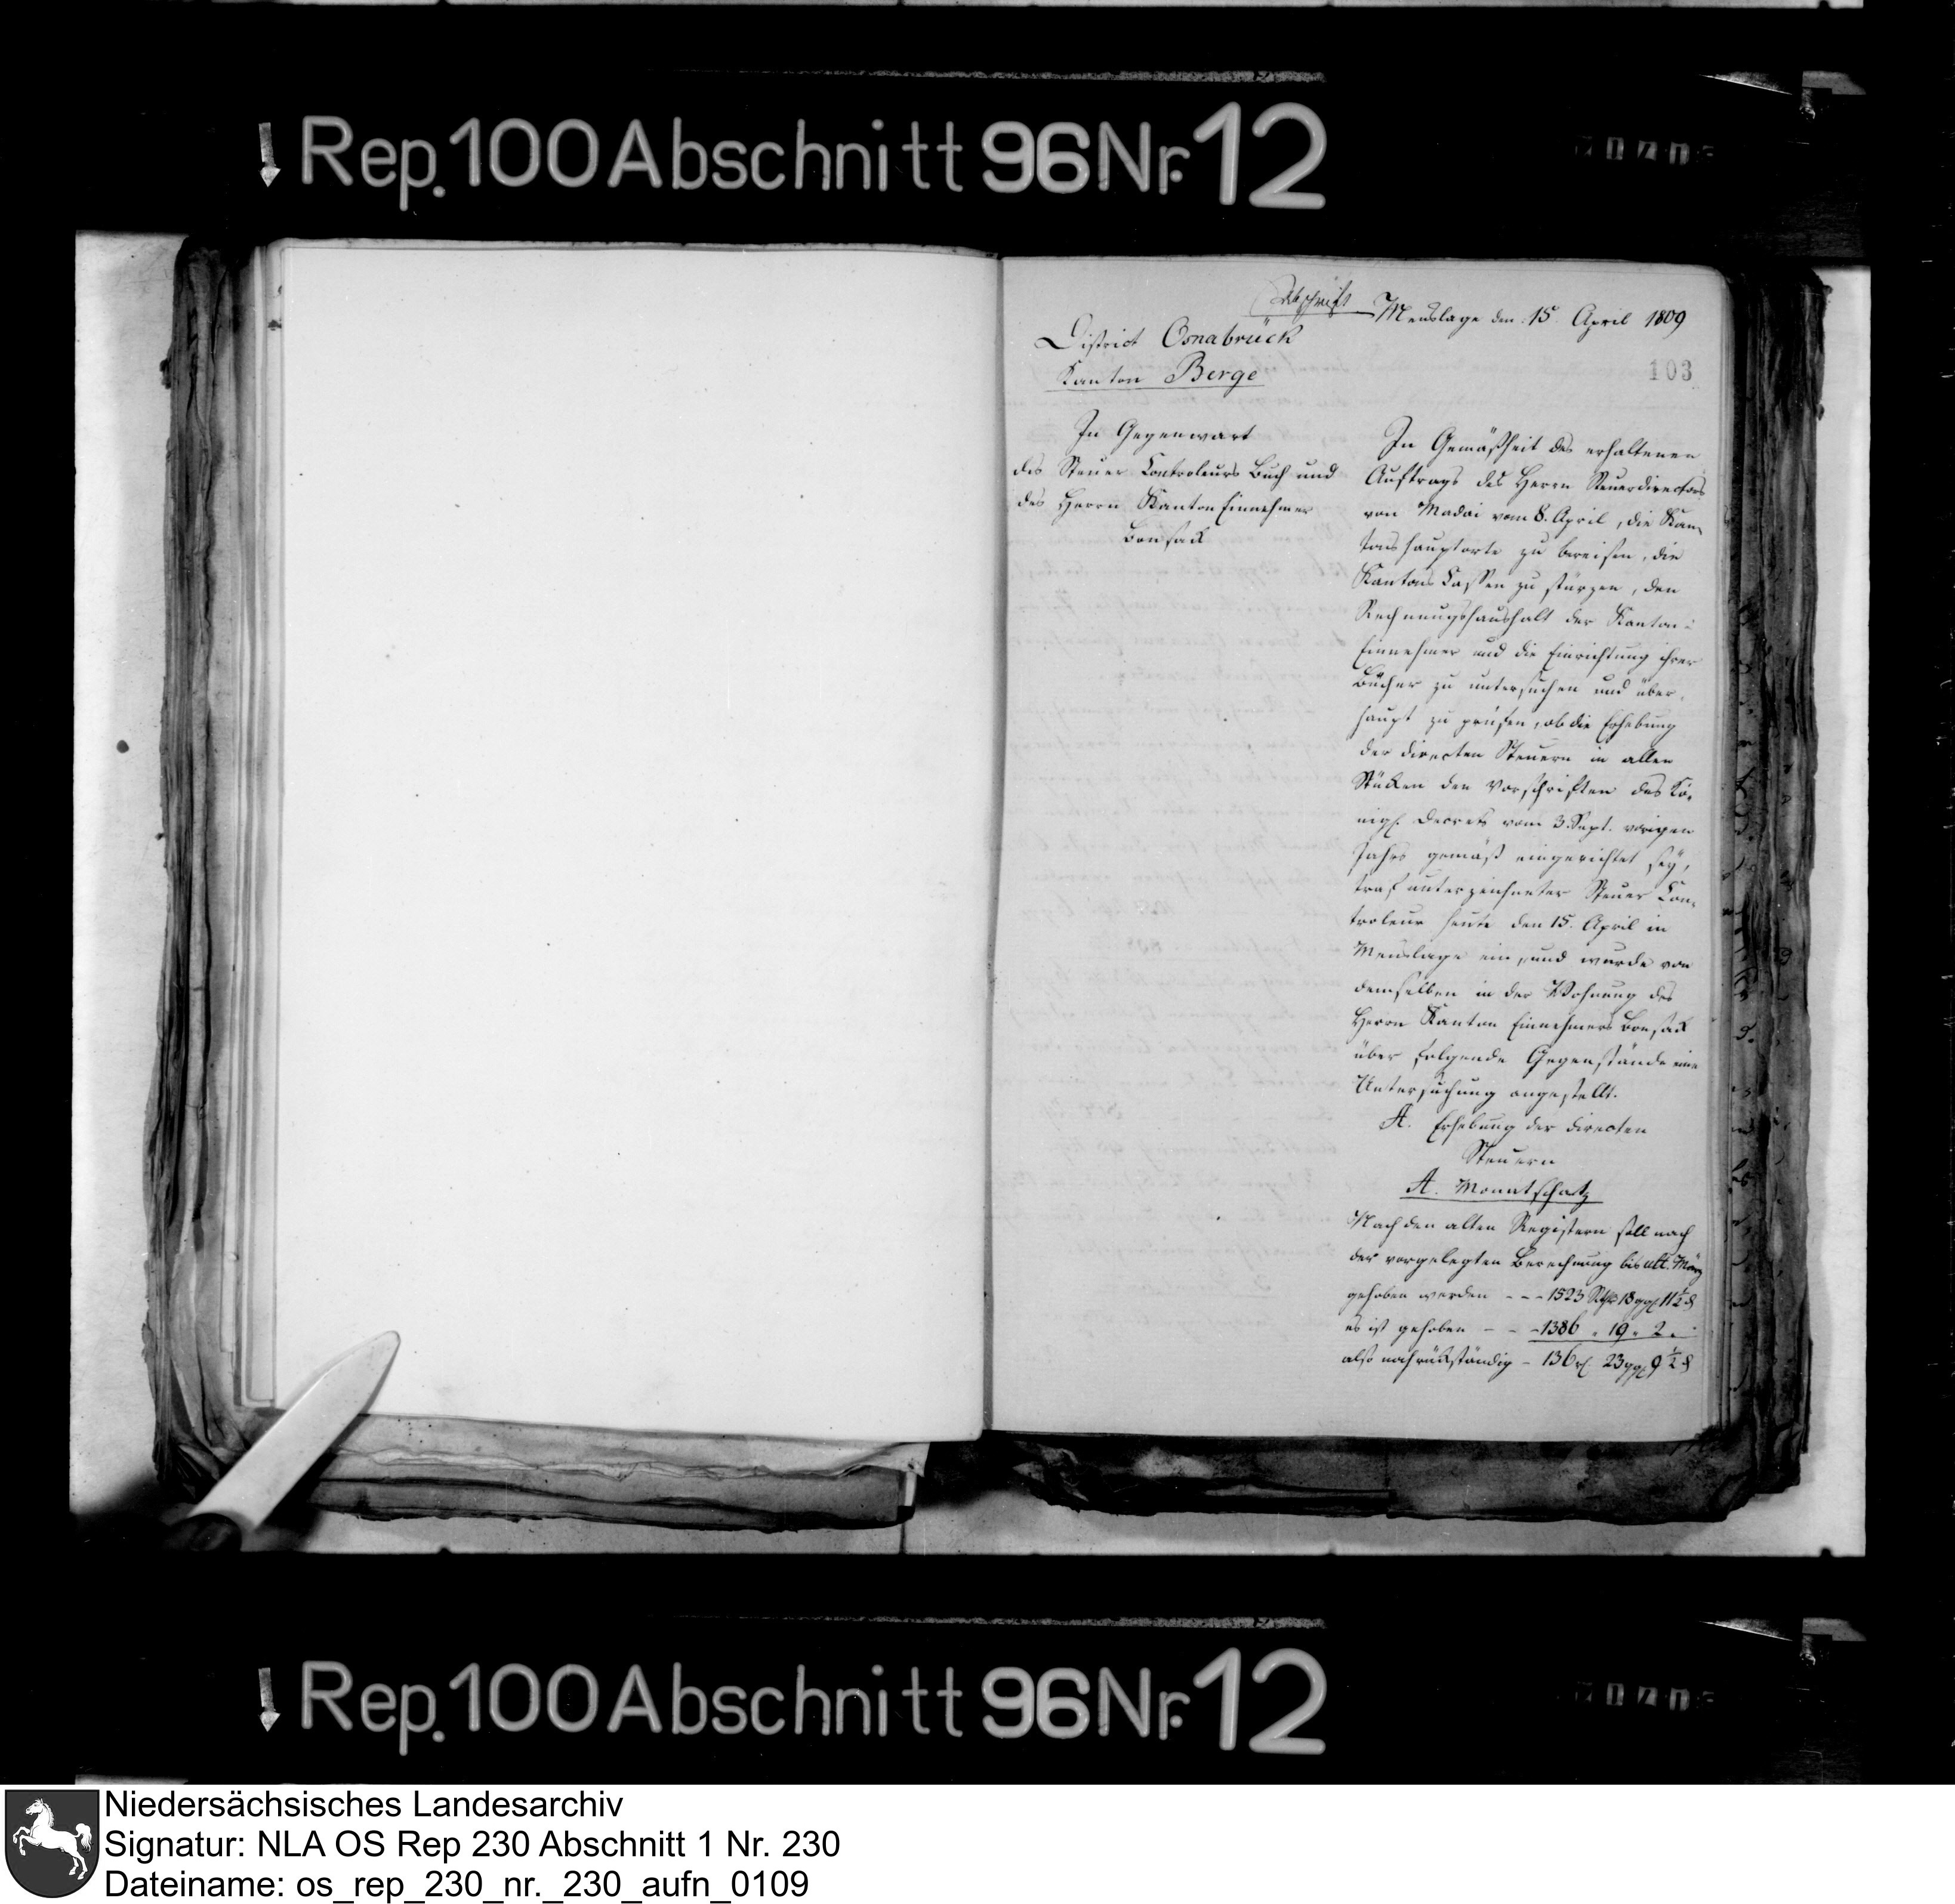 Rep. 100 Abschnitt 96 Nr. 12
Abschrift
Menslage den 15. April 1809
District Osnabrück
Kanton Berge
103
In Gegenwart
des Steuer Controleurs Buch und
des Herrn Kanton Einnehmer
Bonsack
In Gemäßheit des erhaltenen
Auftrags des Herrn Steuerdirectors
von Madai vom 8. April, die Kan-
tons hauptorte zu bereisen, die
Kantons Cassen zu stürzen, den
Rechnungshaushalt der Kanton-
Einnehmer und die Einrichtung ihrer
Bücher zu untersuchen und über-
haupt zu prüfen, ob die Erhebung
der directen Steuern in allen
Stücken den Vorschriften des Kö-
nigl. Decrets vom 3. Sept. vorigen
Jahrs gemäß eingerichtet sey,
traf unterzeichneter Steuer Con-
troleur heute den 15. April in
Menslage ein, und wurde von
demselben in der Wohnung des
Herrn Kanton Einnehmers Bonsack
über folgende Gegenstände eine
Untersuchung angestellt.
A. Erhebung der directen
Steuern
A. Monatschatz
Nach den alten Registern soll nach
der vorgelegten Berechnung bis ult. März
gehoben werden - - - 1523 Rthlr 18 ggl. 11 1/2 d
es ist gehoben - - - 1386 " 19 " 2 "
also noch rückständig - 136 rl. 23 ggl. 9 1/2 d
Rep. 100 Abschnitt 96 Nr. 12
Niedersächsisches Landesarchiv
Signatur: NLA OS Rep 230 Abschnitt 1 Nr. 230
Dateiname: os_rep_230_nr._230_aufn_0109